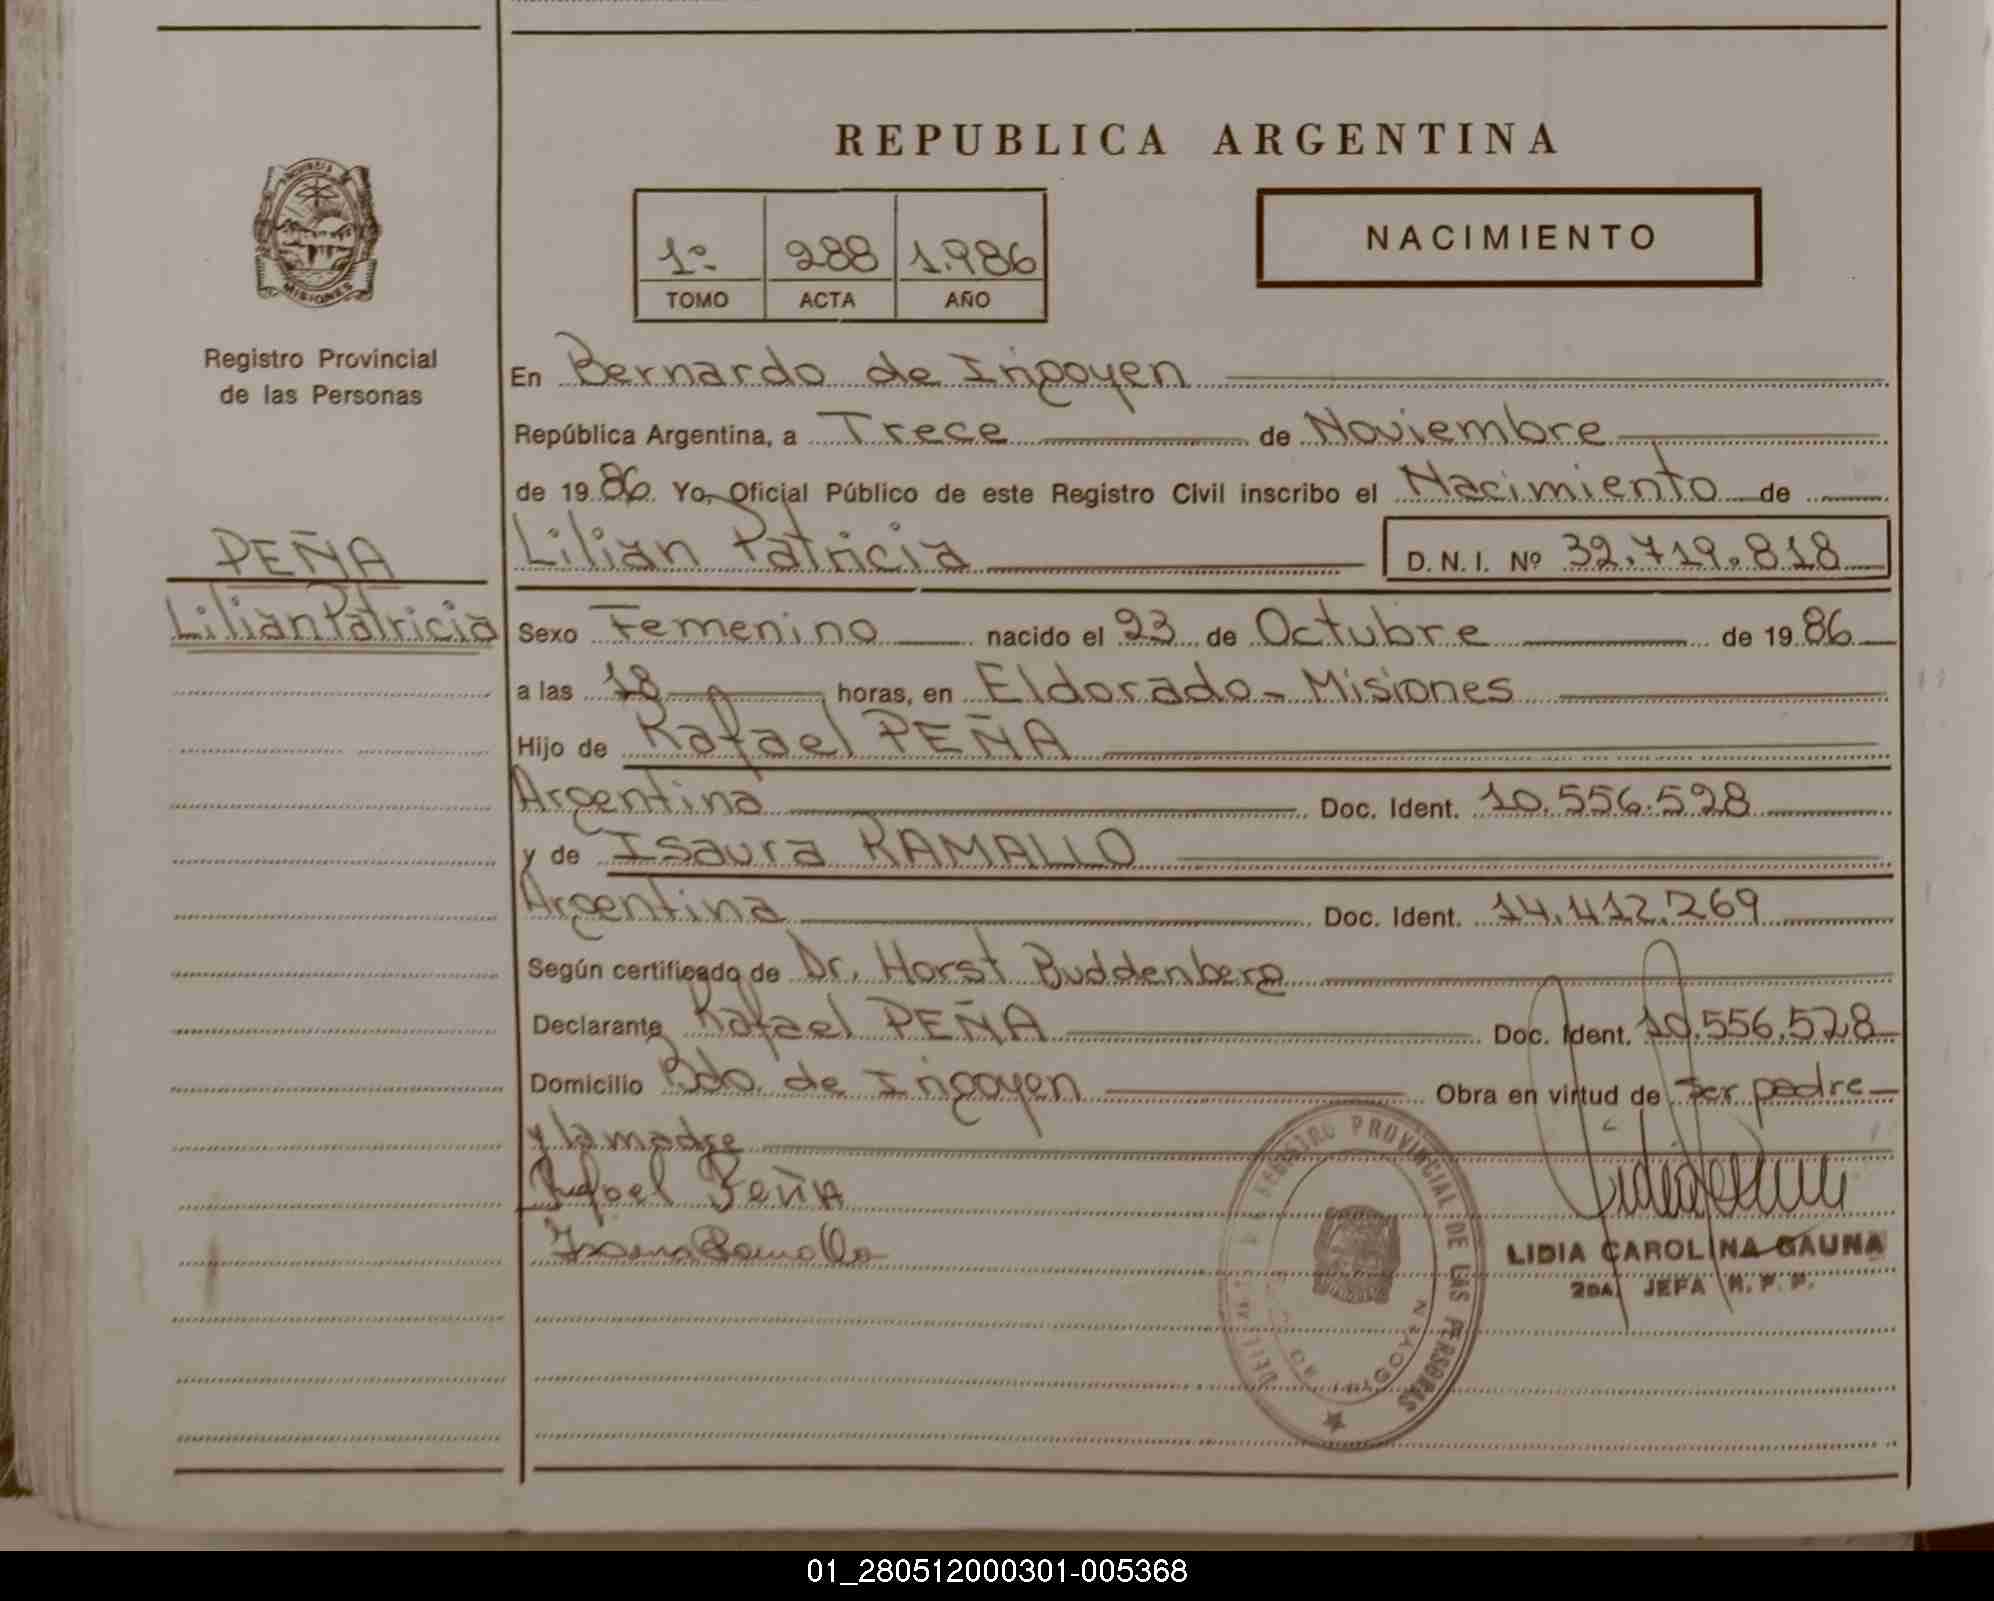 REPUBLICA ARGENTINA
1º 288 1.986
TOMO ACTA AÑO
NACIMIENTO
MISIONES
Registro Provincial
de las Personas
PEÑA
Lilian Patricia
En Bernardo de Irigoyen
República Argentina, a Trece de Noviembre
de 19 86 Yo, Oficial Público de este Registro Civil inscribo el Nacimiento de
Lilian Patricia D. N. I. Nº 32.719.818
Sexo Femenino nacido el 23 de Octubre de 19 86
a las 18 horas, en Eldorado - Misiones
Hijo de Rafael PEÑA
Argentina Doc. Ident. 10.556.528
y de Isaura RAMALLO
Argentina Doc. Ident. 14.412.269
Según certificado de Dr. Horst Buddenberg
Declarante Rafael PEÑA Doc. Ident. 10.556.528
Domicilio Bdo. de Irigoyen Obra en virtud de ser padre
y la madre
Rafael Peña
Isaura Ramallo
REGISTRO PROVINCIAL DE LAS PERSONAS
DE IRIGOYEN
LIDIA CAROLINA GAUNA
2DA. JEFA R. P. P.
01_280512000301-005368